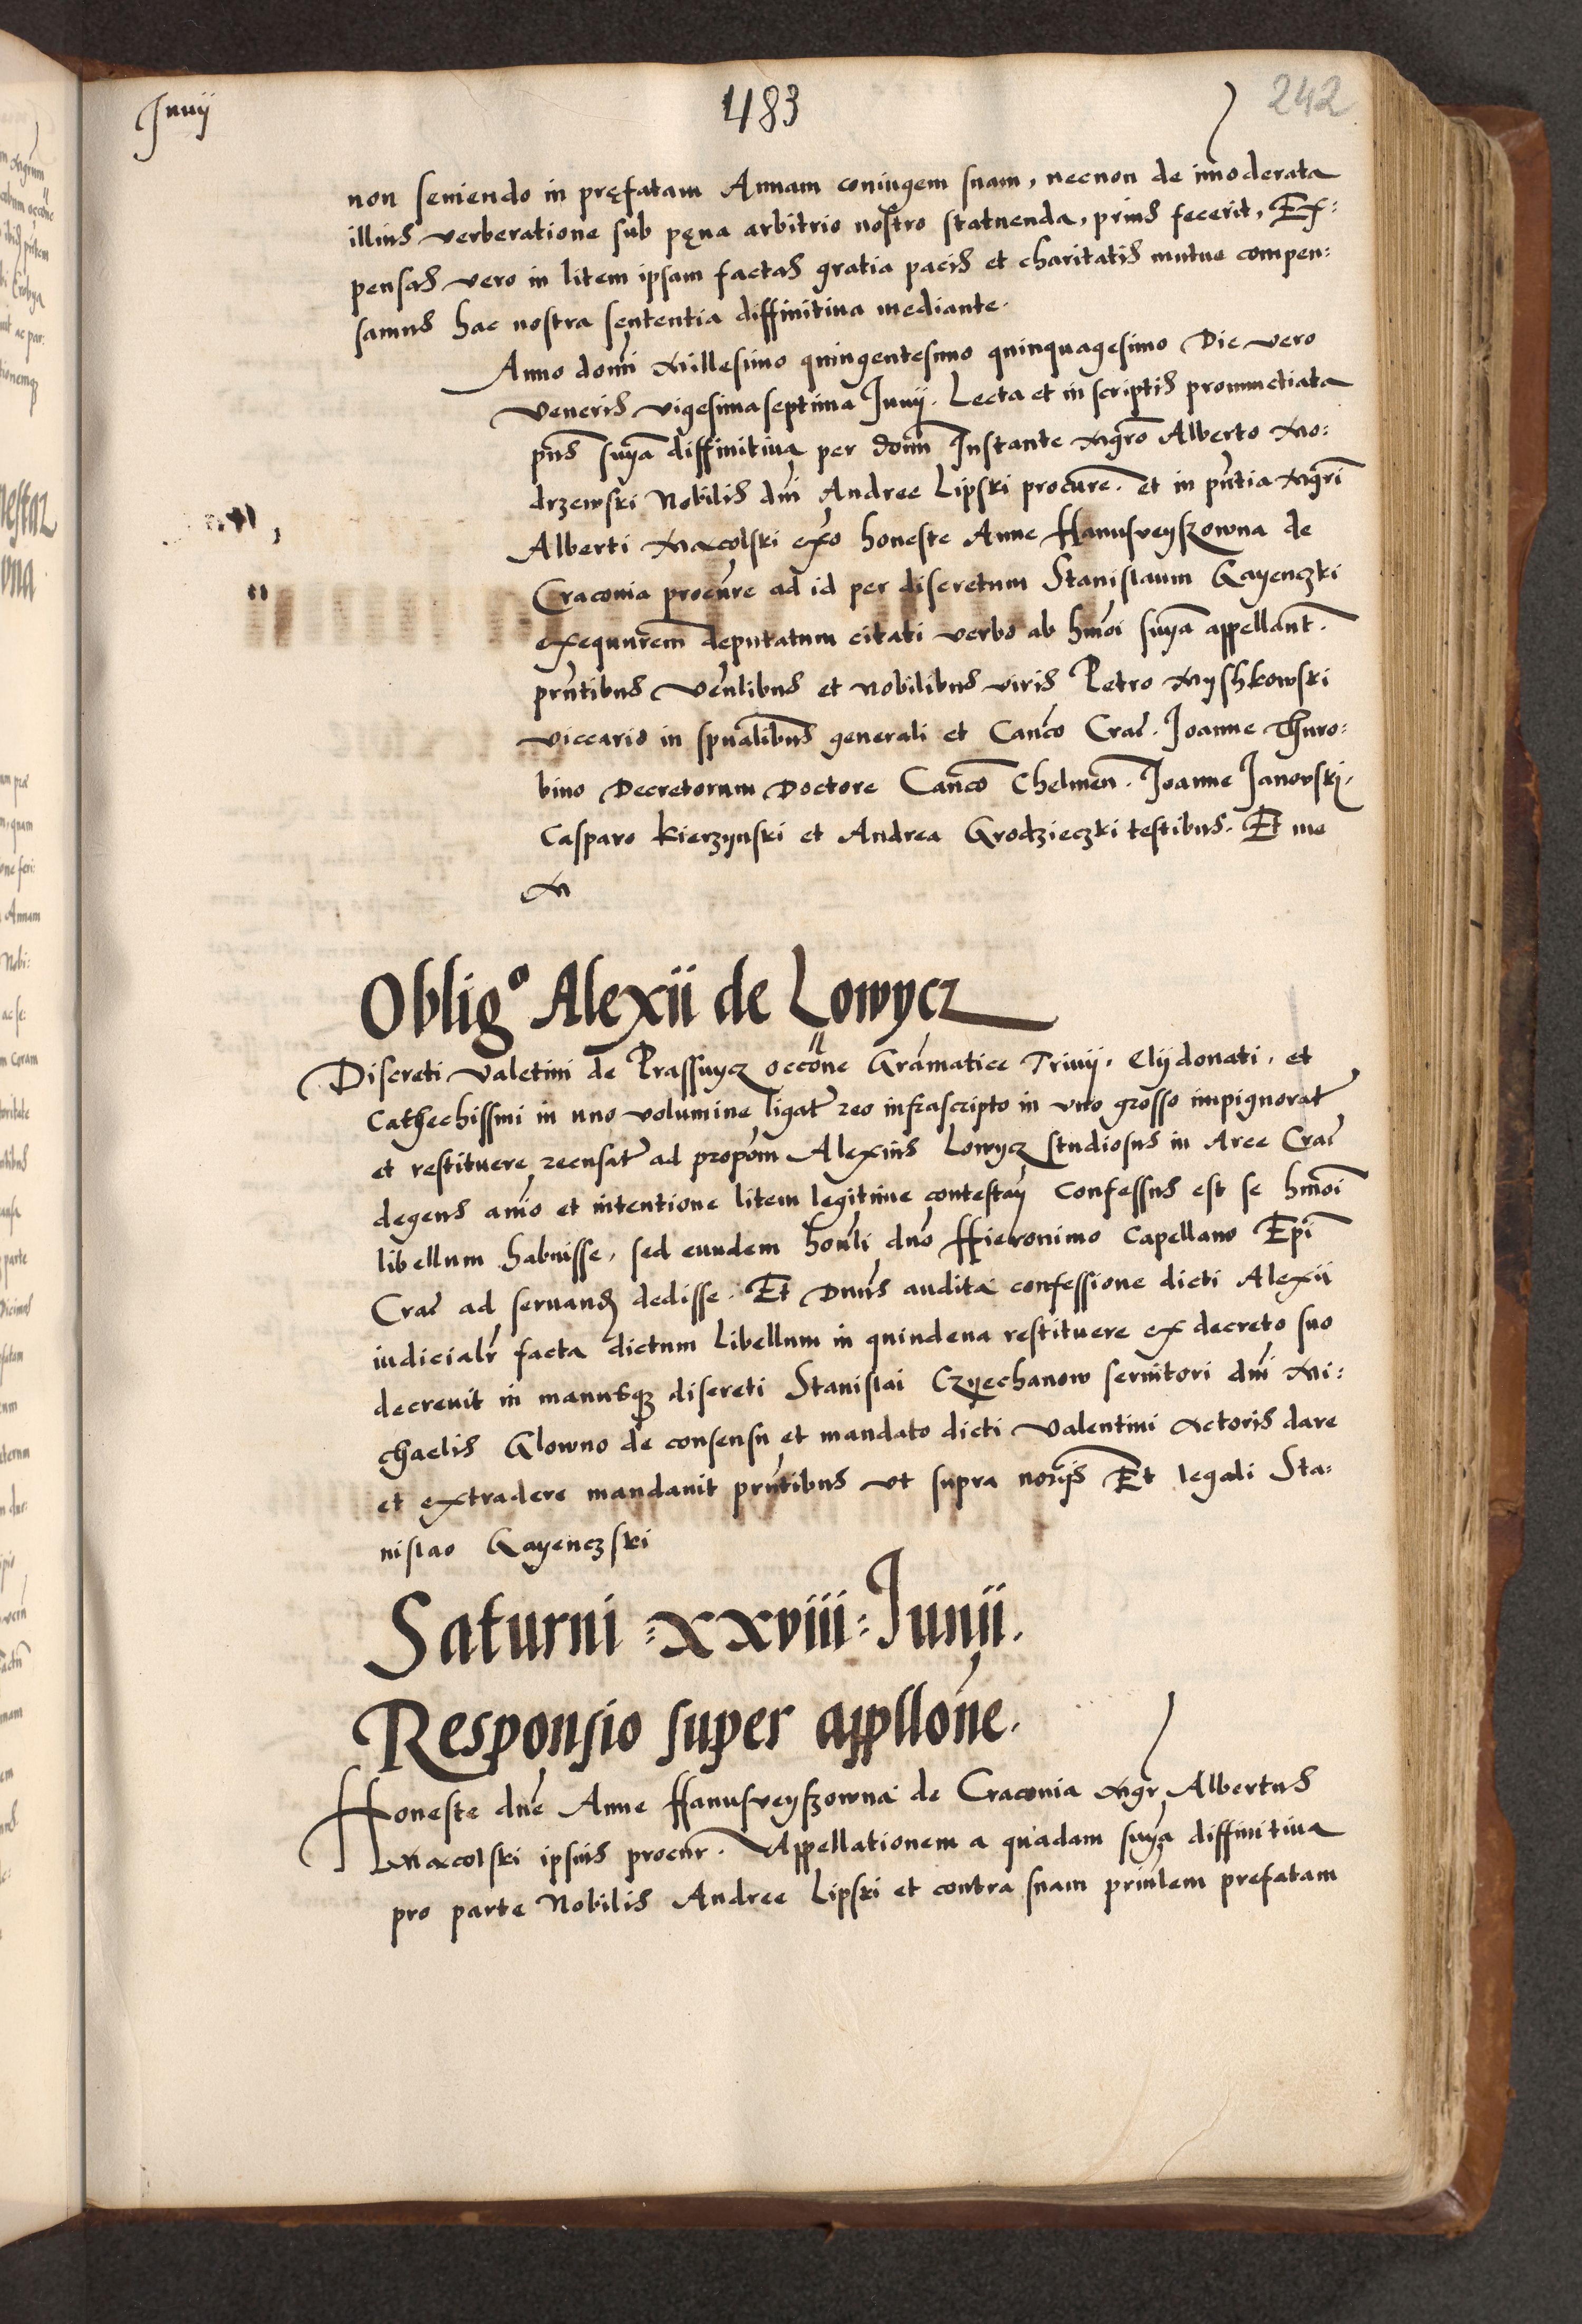 Junij
483
242
non seuiendo in pręfatam Annam coniugem suam, necnon de im̄oderata
illius verberatione sub pęna arbitrio nostro statuenda, prius fecerit, Ex:
pensas vero in litem ipsam factas gratia pacis et charitatis mutue compen:
samus hac nostra sententia diffinitiua mediante.
Anno domī Millesimo quingentesimo quinquagesimo Die vero
Veneris vigesimaseptima Junij. Lecta et in scriptis pronunctiata
pn̄s sn̄ya diffinitiua per don̄m Instante Mgr̄o Alberto Mo:
drzewski Nobilis dn̄i Andree Lipski procure. et in pn̄tia Mgr̄i
Alberti Maxolski ex̄o honeste Anne Hanusveyszowna de
Craconia procure ad id per discretum Stanislaum Gayenczki
exequurem̄ deputatum citati verbo ab hm̄oi sn̄ya appellant̄.
prn̄tibus Ven̄libus et Nobilibus viris Petro Myshkowski
viccario in spūalibus generali et Can̄co Crac̄. Joanne Thuro:
bino Decretorum Doctore Can̄co Chelmen̄. Joanne Janovski,
Casparo Kierzynski et Andrea Grodzieczki testibus. Et me
M
Obligᵒ Alexii de Lowycz
Discreti Valetini de Prassuycz occōne Gram̄atice Triuij. Elij donati, et
Cathechissmi in uno volumine ligat̄ reo infrascripto in vno grosso impignorat̄
et restituere recusat̄ ad propōm Alexius Lowycz studiosus in Arce Crac̄
degens anīo et intentione litem legitime contestan̄ Confessus est se hm̄oi
libellum habuisse, sed eundem hon̄li dn̄o Hieronimo Capellano Epī
Crac̄ ad seruand̄ dedisse. Et Dn̄us audita confessione dicti Alexii
iudicialr̄ facta dictum Libellum in quindena restituere ex decreto suo
decreuit in manusqz discreti Stanislai Czyechanow seruitori dn̄i Mi:
chaelis Glowno de consensu et mandato dicti Valentini Actoris dare
et extradere mandauit prn̄tibus vt supra nor̄ijs Et legali Sta:
nislao Gayenczski
Saturni :xxviii: Junij.
Responsio super appllōne.
Honeste dn̄e Anne Hanusveyszowna de Craconia Mgr̄ Albertus
Maxcolski ipsius procur̄. Appellationem a quadam sn̄ya diffinitiua
pro parte Nobilis Andree Lipski et contra suam prin̄lem prefatam